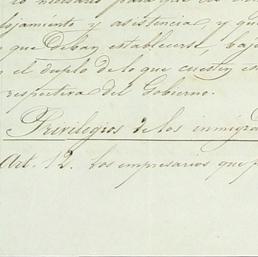 lo necesario para que
lojamiento y asistencia, y que
n que deban establecerse, bajo
n el duplo de lo que cuesten
respectiva del Gobierno.
Privilegios de los inmigra
Art. 12. Los empresarios que